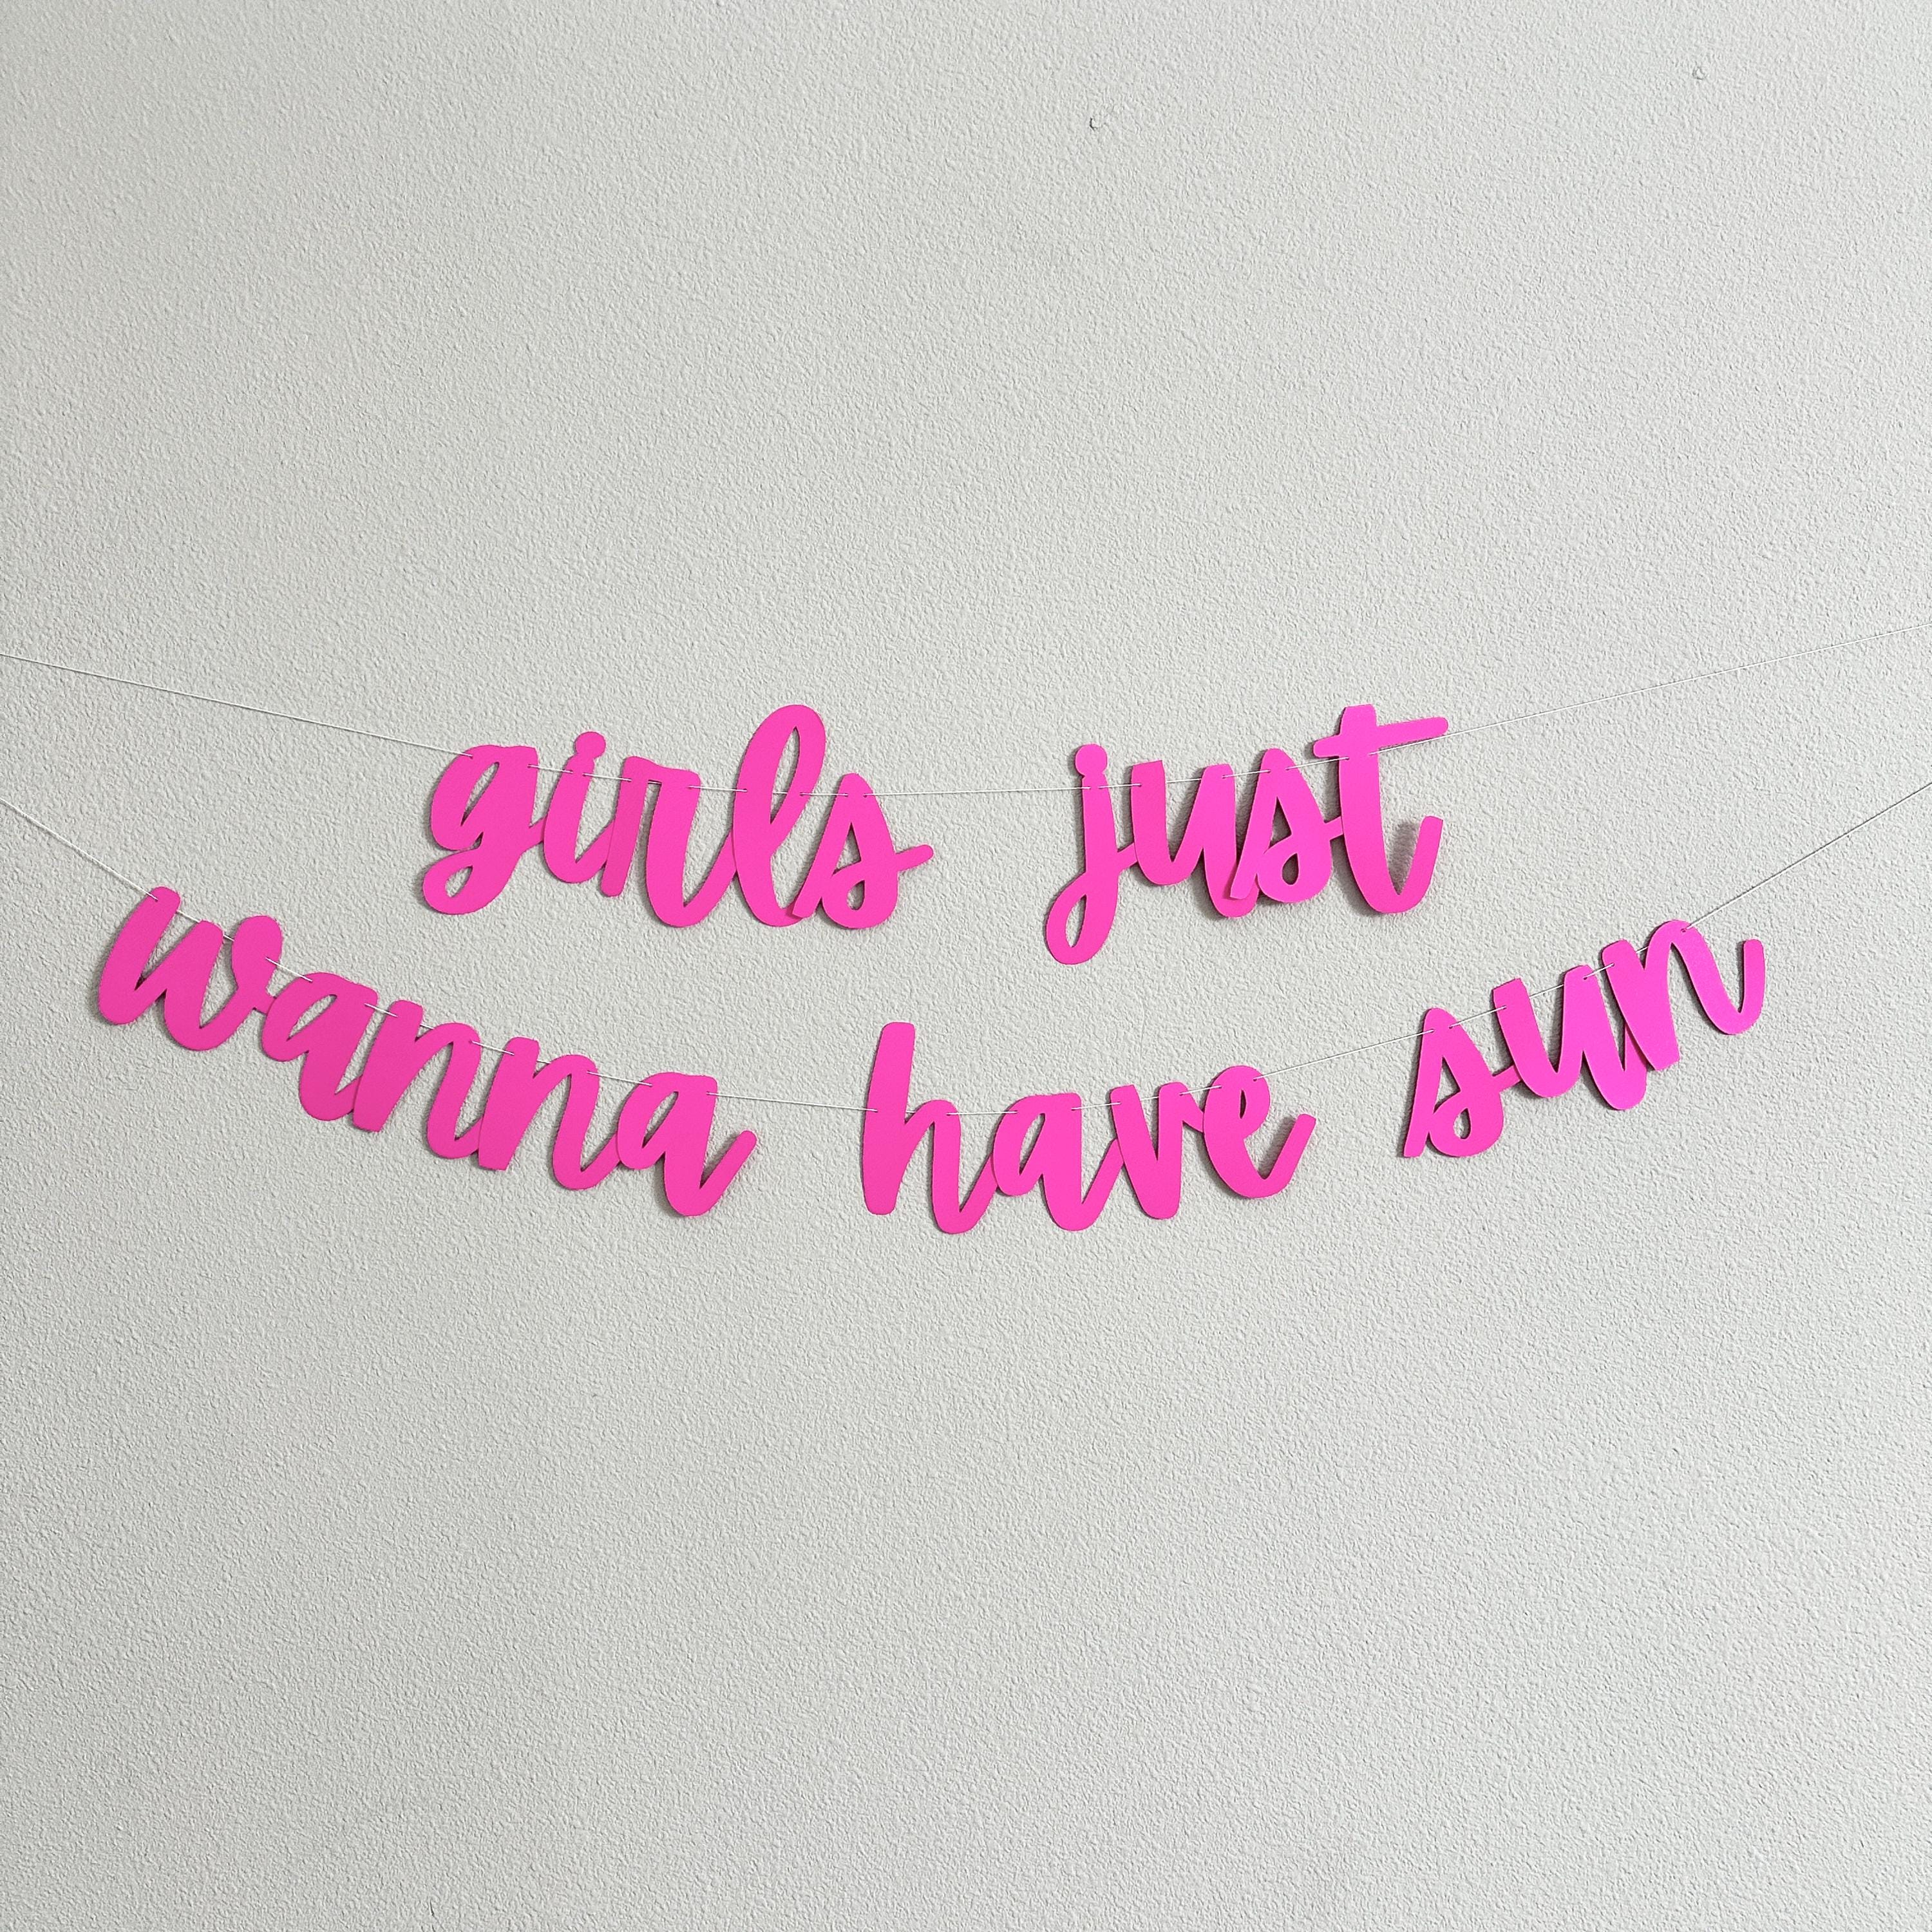 girls just
wanna have sun